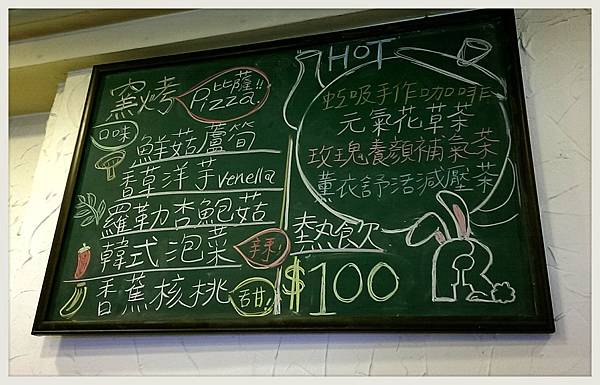 窯烤 比薩!! Pizza
口味
鮮菇蘆筍
香草洋芋venella
羅勒杏鮑菇
韓式泡菜 辣!
香蕉核桃 甜!
HOT
虹吸手作咖啡
元氣花草茶
玫瑰養顏補氣茶
薰衣舒活減壓茶
熱飲
$100
R